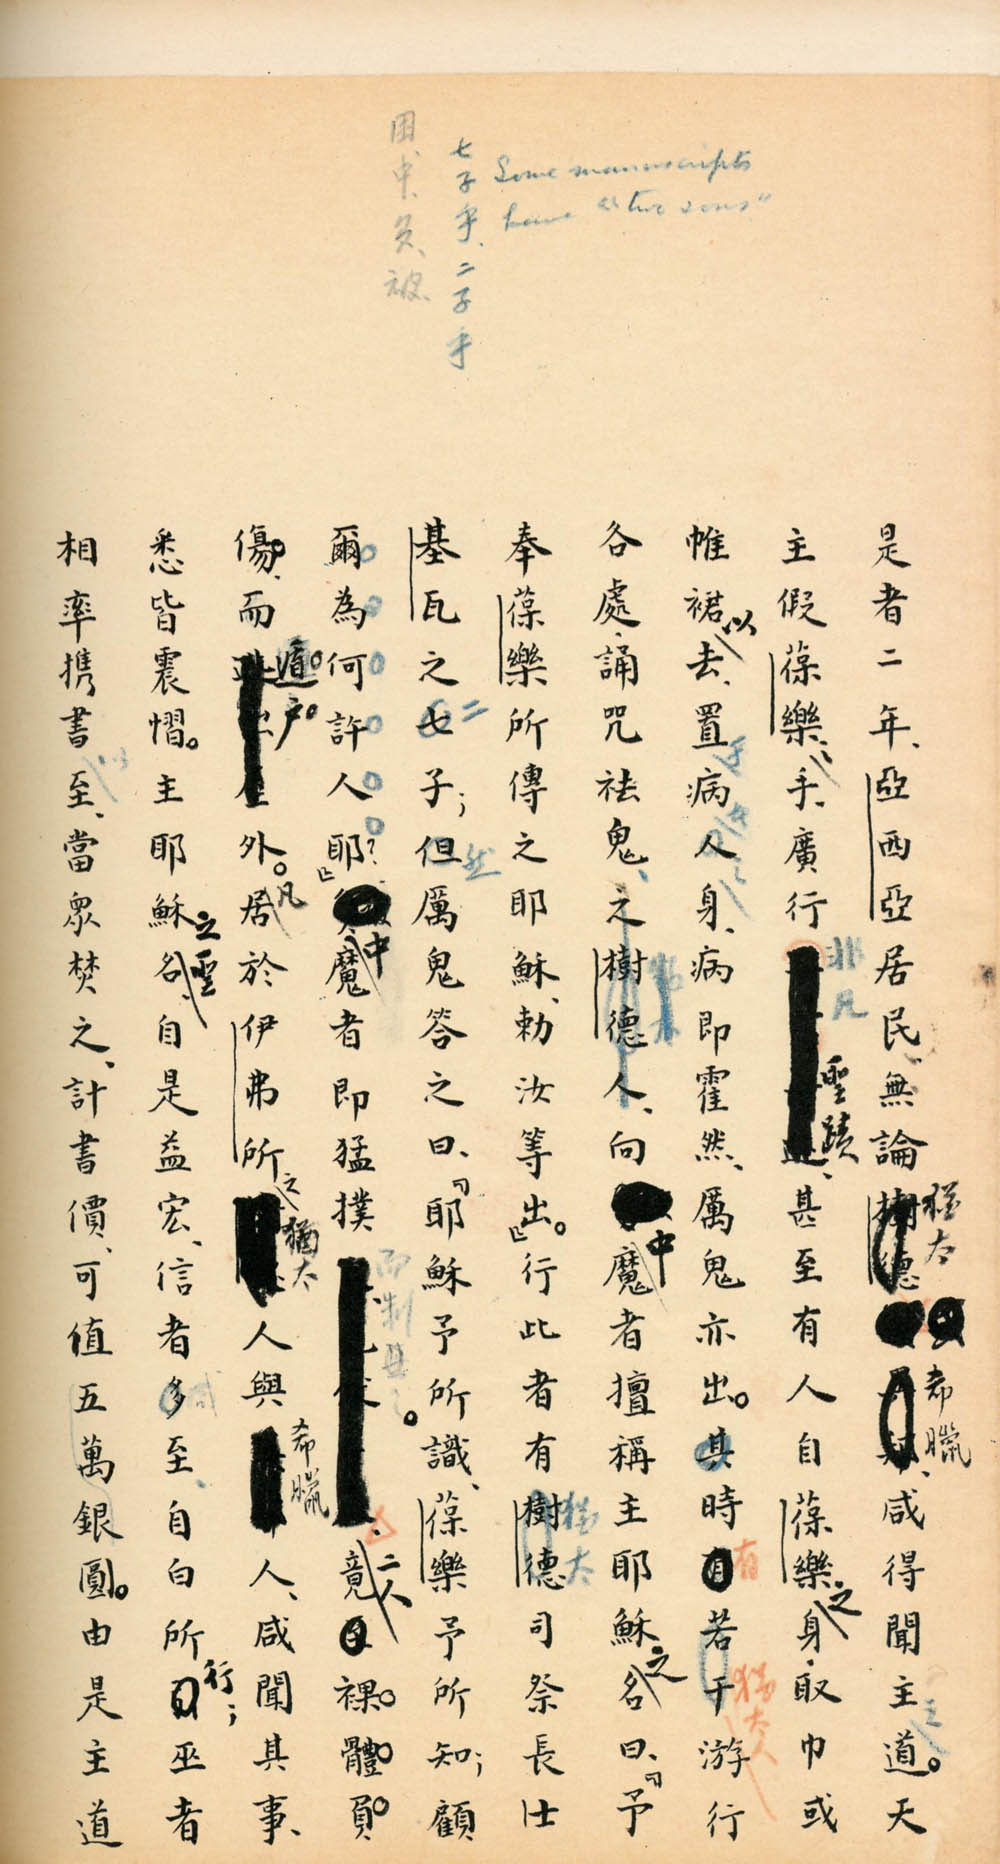 Some manuscripts
have "two sons"
七子乎、二子乎
是者二年、亞西亞居民、無論猶太希臘、咸得聞主道。天
主假葆樂之手、廣行非凡聖蹟、甚至有人自葆樂之身取巾或
帷裙以去、置病人身、病即霍然、厲鬼亦出。其時有若干游行
各處、誦咒祛鬼、之樹德人、向中魔者擅稱主耶穌之名曰、「予
奉葆樂所傳之耶穌、勅汝等出。」行此者有樹德猶太司祭長仕
基瓦之七二子；但然厲鬼答之曰、「耶穌予所識、葆樂予所知；顧
爾為何許人耶？」中魔者即猛撲而制。竟二人裸體負
傷、而遁戶外。凡居於伊弗所之猶太人與希臘人、咸聞其事、
悉皆震慴。主耶穌之聖名、自是益宏、信者多至、自白所行；巫者
相率攜書至、當眾焚之、計書價、可值五萬銀圓。由是主道